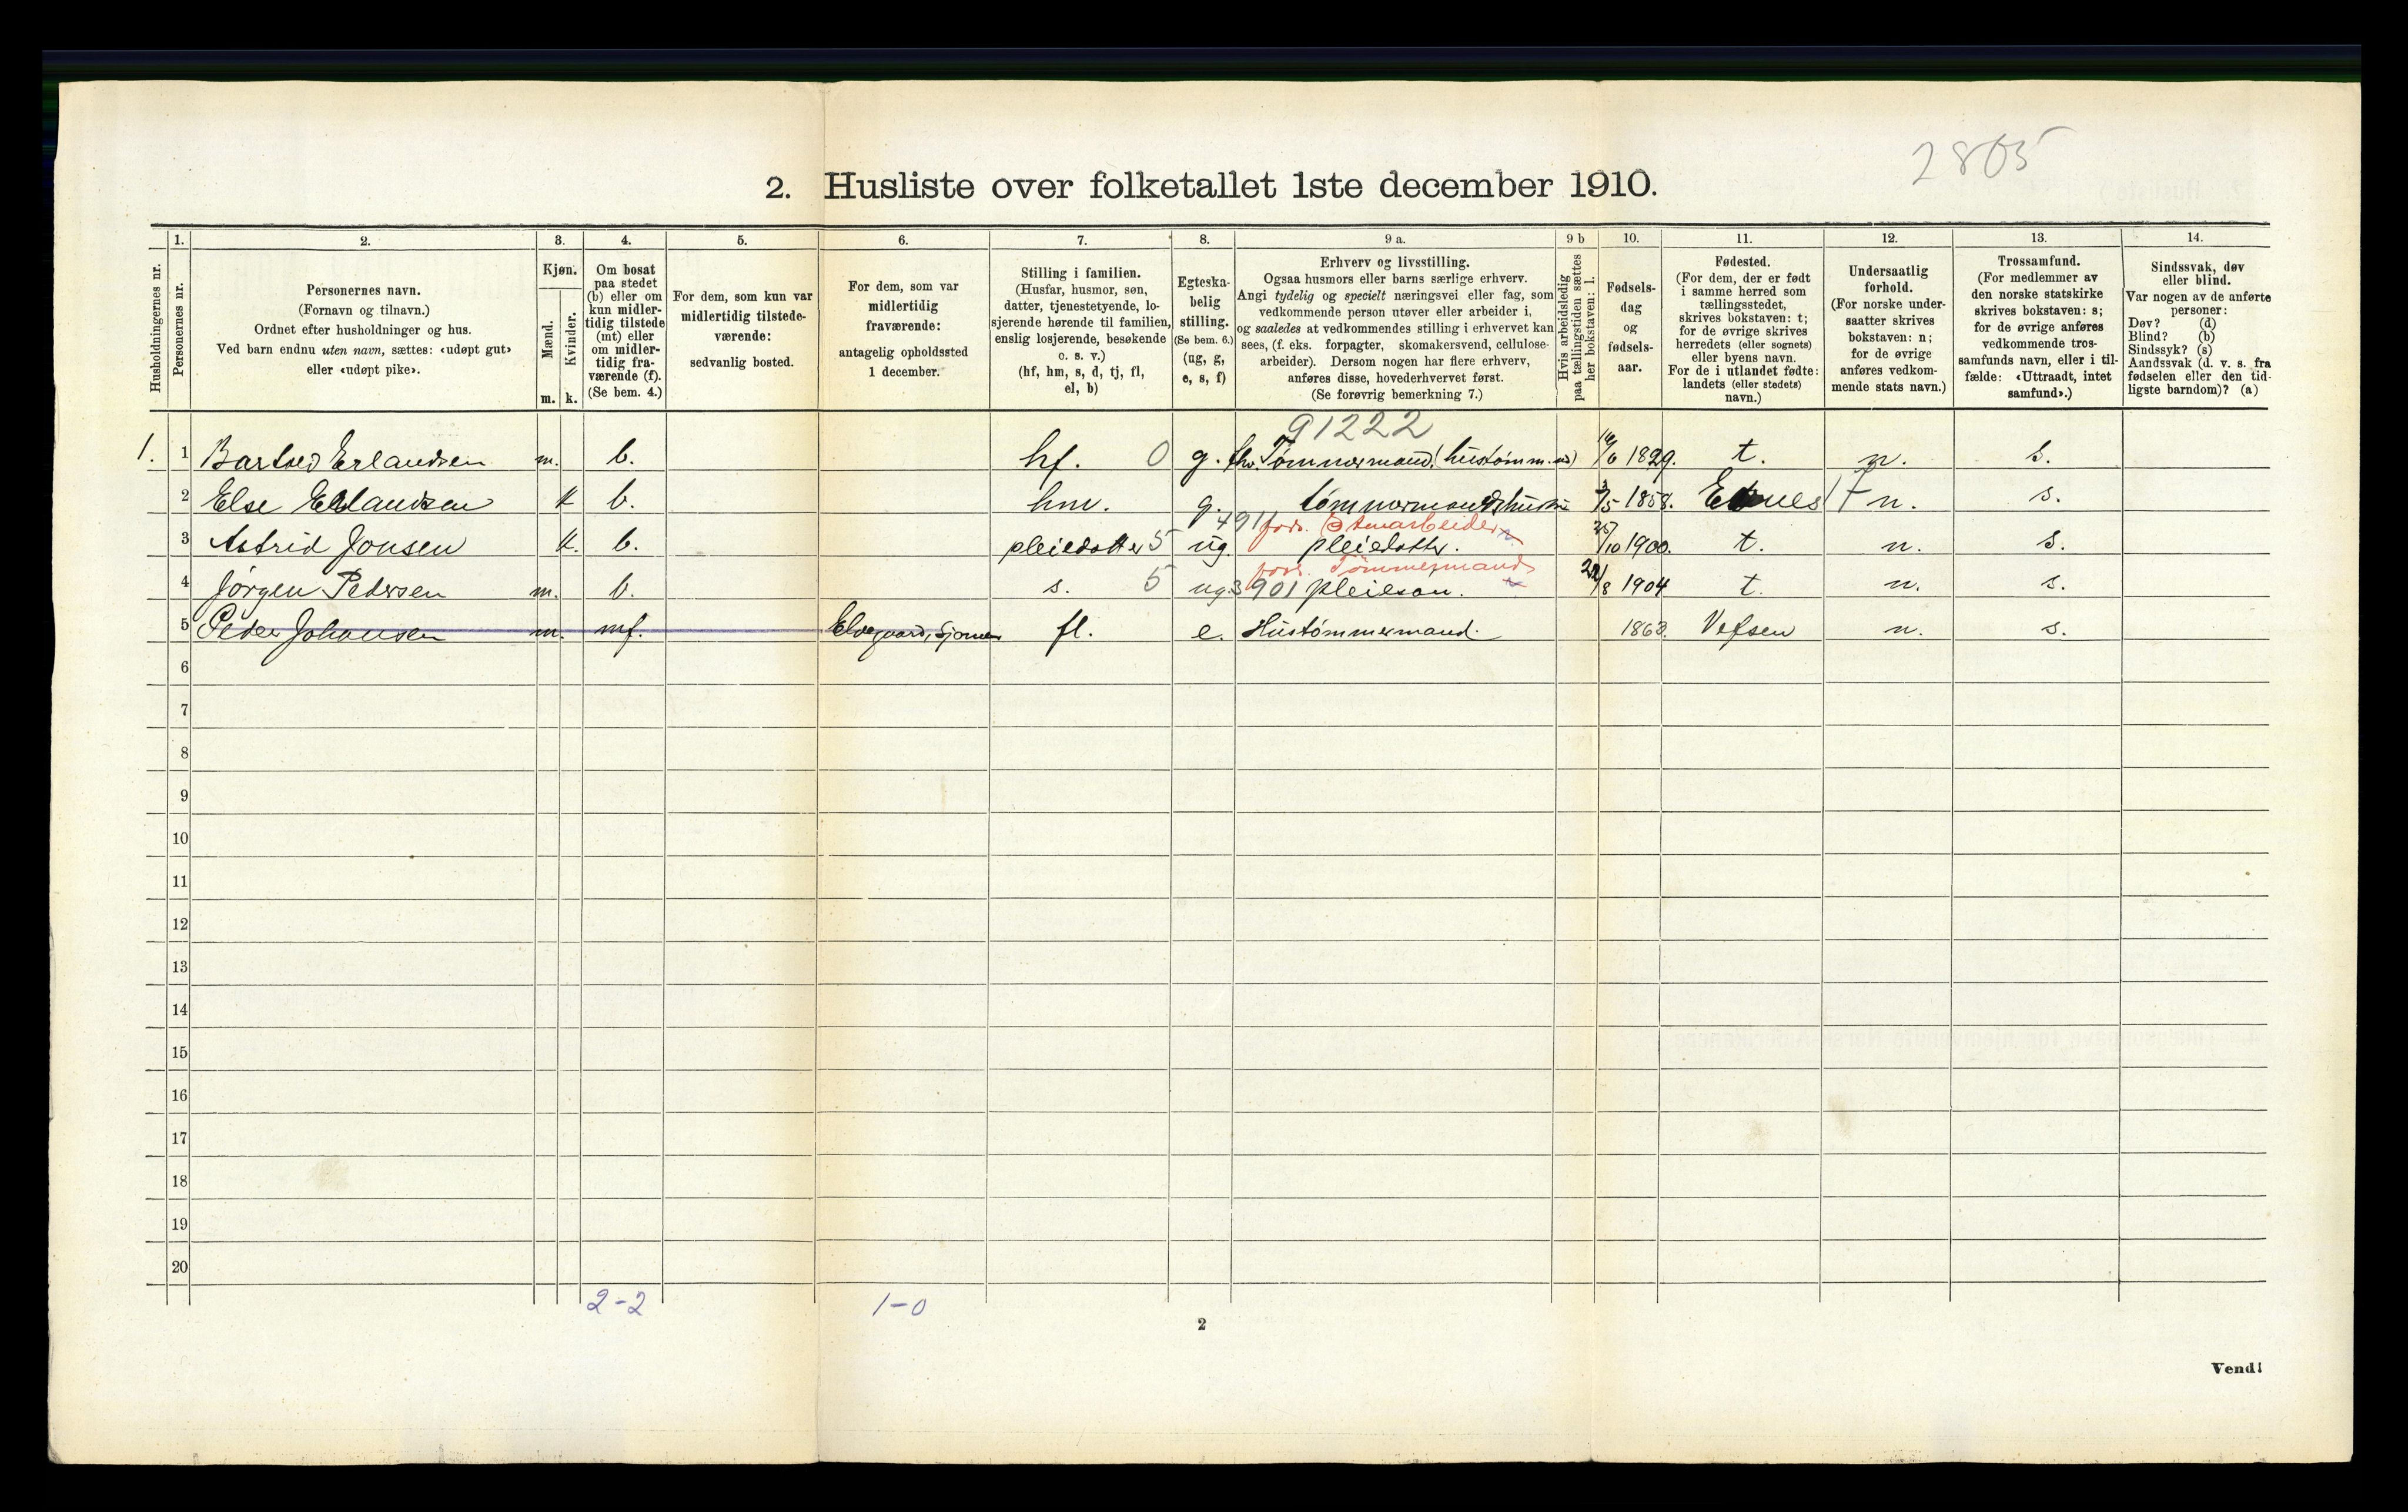 2805
2. Husliste over folketallet 1ste december 1910.
Husholdningernes nr.
1.
Personernes nr.
2.
Personernes navn.
(Fornavn og tilnavn.)
Ordnet efter husholdninger og hus.
Ved barn endnu uten navn, sættes: «udøpt gut»
eller «udøpt pike».
3.
Kjøn.
Mænd.
Kvinder.
m.
k.
4.
Om bosat
paa stedet
(b) eller om
kun midler-
tidig tilstede
(mt) eller
om midler-
tidig fra-
værende (f).
(Se bem. 4.)
5.
For dem, som kun var
midlertidig tilstede-
værende:
sedvanlig bosted.
6.
For dem, som var
midlertidig
fraværende:
antagelig opholdssted
1 december.
7.
Stilling i familien.
(Husfar, husmor, søn,
datter, tjenestetyende, lo-
sjerende hørende til familien,
enslig losjerende, besøkende
o. s. v.)
(hf, hm, s, d, tj, fl,
el, b)
8.
Egteska-
belig
stilling.
(Se bem. 6.)
(ug, g,
e, s, f)
9 a.
Erhverv og livsstilling.
Ogsaa husmors eller barns særlige erhverv.
Angi tydelig og specielt næringsvei eller fag, som
vedkommende person utøver eller arbeider i,
og saaledes at vedkommendes stilling i erhvervet kan
sees, (f. eks. forpagter, skomakersvend, cellulose-
arbeider). Dersom nogen har flere erhverv,
anføres disse, hovederhvervet først.
(Se forøvrig bemerkning 7.)
9 b
Hvis arbeidsledig
paa tællingstiden sættes
her bokstaven: l.
10.
Fødsels-
dag
og
fødsels-
aar.
11.
Fødested.
(For dem, der er født
i samme herred som
tællingsstedet,
skrives bokstaven: t;
for de øvrige skrives
herredets (eller sognets)
eller byens navn.
For de i utlandet fødte:
landets (eller stedets)
navn.)
12.
Undersaatlig
forhold.
(For norske under-
saatter skrives
bokstaven: n;
for de øvrige
anføres vedkom-
mende stats navn.)
13.
Trossamfund.
(For medlemmer av
den norske statskirke
skrives bokstaven: s;
for de øvrige anføres
vedkommende tros-
samfunds navn, eller i til-
fælde: «Uttraadt, intet
samfund».)
14.
Sindssvak, døv
eller blind.
Var nogen av de anførte
personer:
Døv? (d)
Blind? (b)
Sindssyk? (s)
Aandssvak (d. v. s. fra
fødselen eller den tid-
ligste barndom)? (a)
91222
1. 1 Erlandsen m. b. hf. 0 g. Tømmermand (hustømm. 1829. t. n. s.
2 Else Erlandsen k b. hm. g. tømmermandshustru 3/5 1858. n. s.
4911 fors.
3 Astrid Jonsen k. b. pleiedatter 5 ug. pleiedatter. 25/10 1900. t. n. s.
fors. Tømmermand
4 Jørgen Pedersen m. b. s. 5 ug. 3901 pleiesøn. /8 1904 t. n. s.
5 Peder Johansen m. mf. Elvegaard, fl. e. Hustømmermand. 1863. Vefsen n. s.
6
7
8
9
10
11
12
13
14
15
16
17
18
19
20
2-2 1-0
2
Vend!